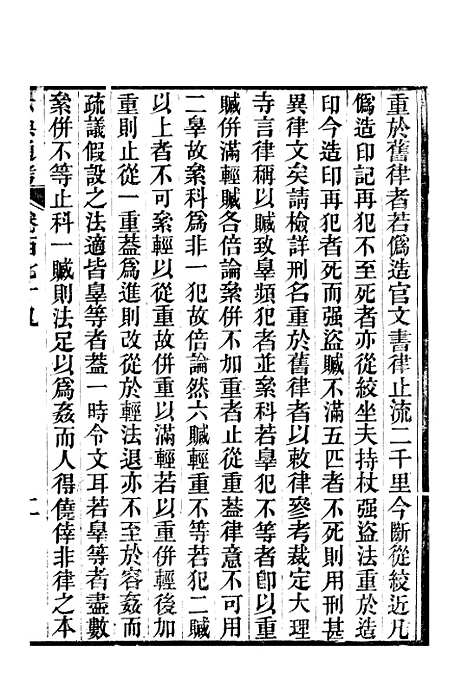 重於舊律者若僞造官文書律止流二千里今斷從絞近凡
僞造印記再犯不至死者亦從絞坐夫持杖强盜法重於造
印今造印再犯者死而强盜贓不滿五匹者不死則用刑甚
異律文矣請檢詳刑名重於舊律者以敕律參考裁定大理
寺言律稱以贓致辠頻犯者並絫科若辠犯不等者卽以重
贓併滿輕贓各倍論絫併不加重者止從重葢律意不可用
二辠故絫科爲非一犯故倍論然六贓輕重不等若犯二贓
以上者不可絫輕以從重故併重以滿輕若以重併輕後加
重則止從一重葢爲進則改從於輕法退亦不至於容姦而
疏議假設之法適皆辠等者葢一時令文耳若辠等者盡數
絫併不等止科一贓則法足以爲姦而人得僥倖非律之本
卷一百七十九
二